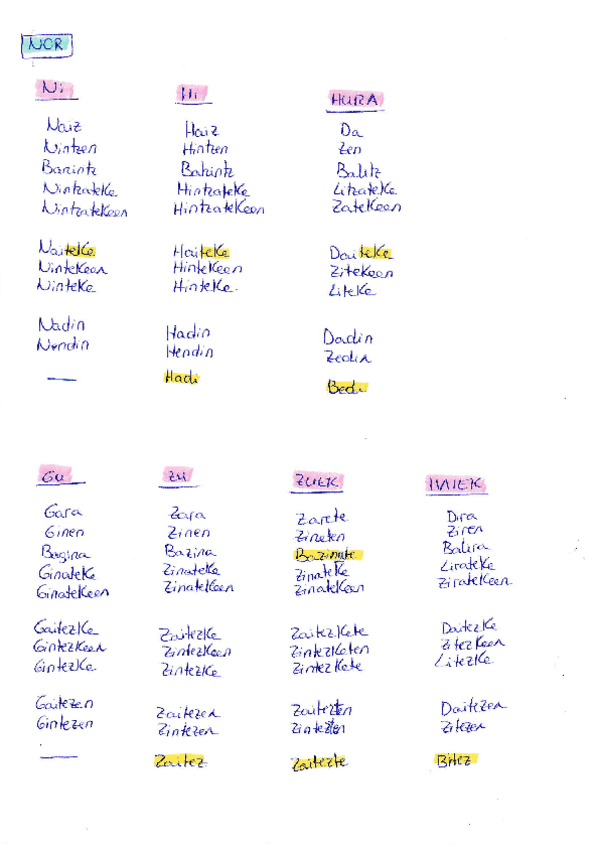 NOR
Ni Hi HURA
Naiz Haiz Da
Nintzen Hintzen Zen
Banintz Bahintz Balitz
Nintzateke Hintzateke Litzateke
Nintzatekeen Hintzatekeen Zatekeen
Naiteke Haiteke Daiteke
Nintekeen Hintekeen Zitekeen
Ninteke Hinteke Liteke
Nadin Hadin Dadin
Nendin Hendin Zedin
— Hadi Bedi
Gu Zu ZUEK HAIEK
Gara Zara Zarete Dira
Ginen Zinen Zineten Ziren
Bagina Bazina Bazinate Balira
Ginateke Zinateke Zinateke Lirateke
Ginatekeen Zinatekeen Zinatekeen Ziratekeen
Gaitezke Zaitezke Zaitezkete Daitezke
Gintezkeen Zintezkeen Zintezketen Zitezkeen
Gintezke Zintezke Zintezkete Litezke
Gaitezen Zaitezen Zaitezten Daitezen
Gintezen Zintezen Zintezten Zitezen
— Zaitez Zaitezte Bitez